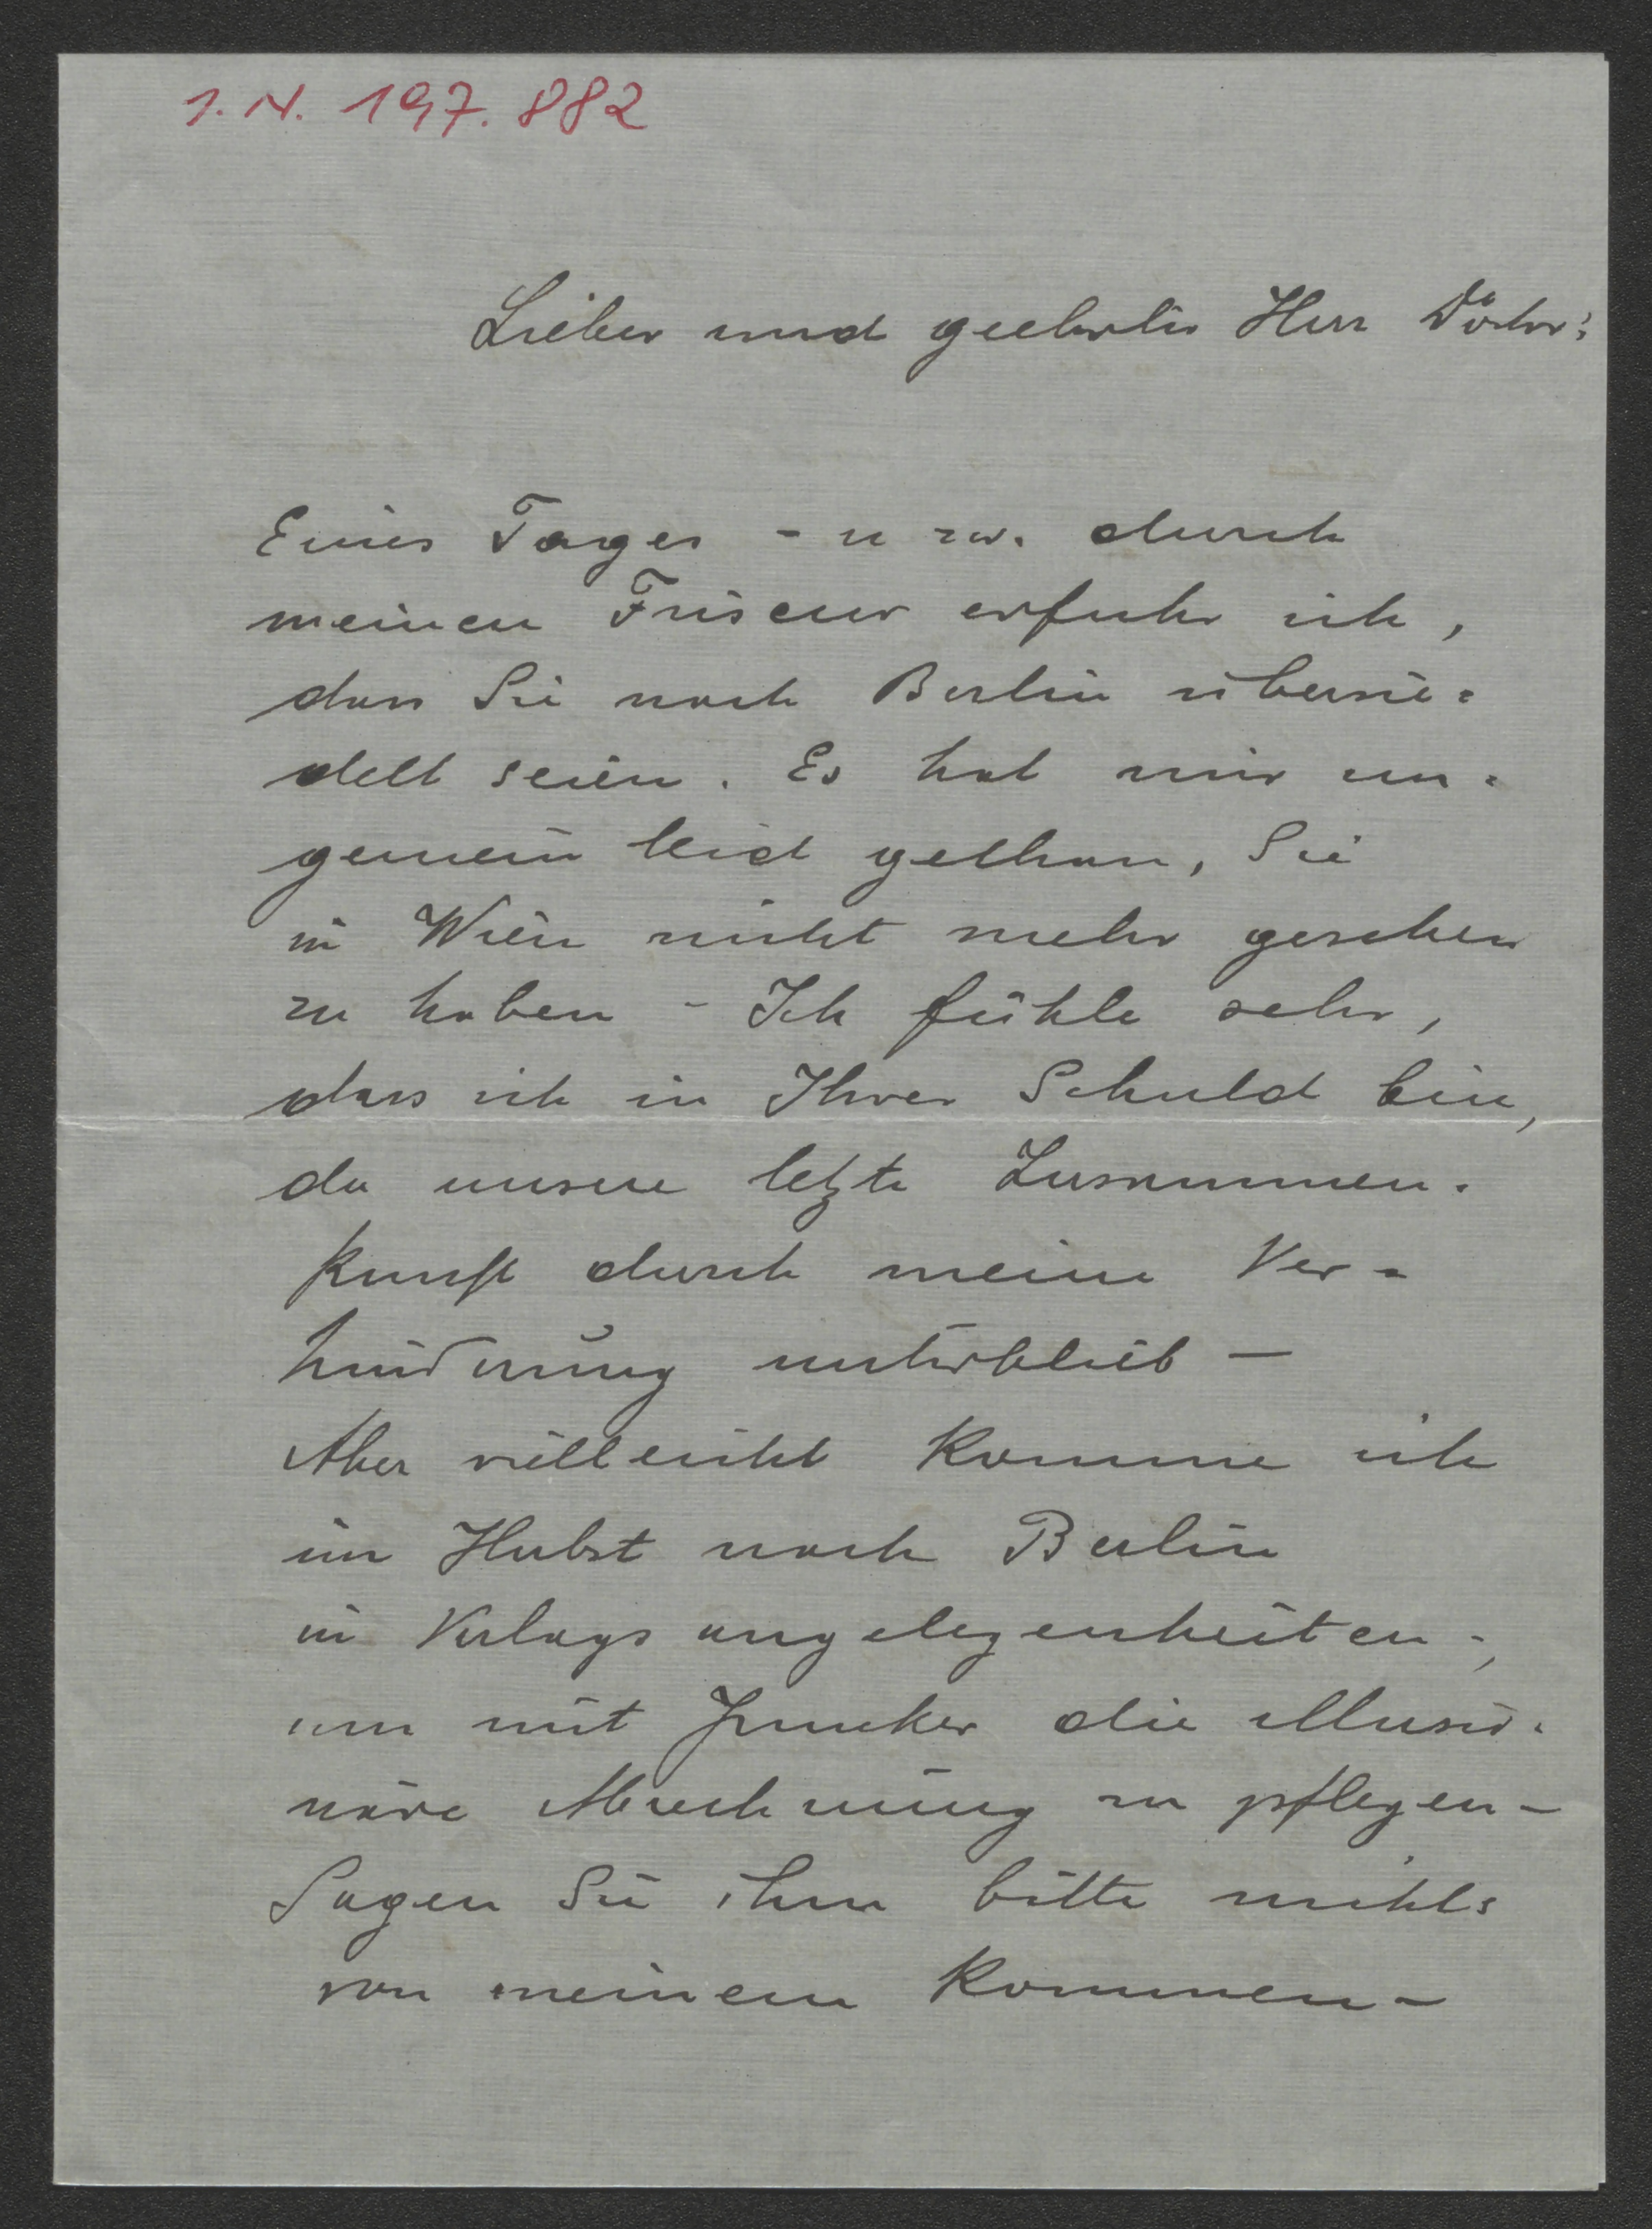 I. N. 197.882
Lieber und geehrter Herr
Eines Tages - u zw. durch
meinen Friseur erfuhr ich,
dass Sie nach Berlin übersie=
delt seien. Es hat mir un=
gemein leid gethan, Sie
in Wien nicht mehr gesehen
zu haben - Ich fühle sehr,
dass ich in Ihrer Schuld bin,
da unsere letzte Zusammen=
kunft durch meine Ver=
hinderung unterblieb —
Aber vielleicht komme ich
im Herbst nach Berlin
in Verlagsangelegenheiten -,
um mit Juncker die illusio=
näre Abrechnung zu pflegen -
Sagen Sie ihm bitte nichts
von meinem Kommen -